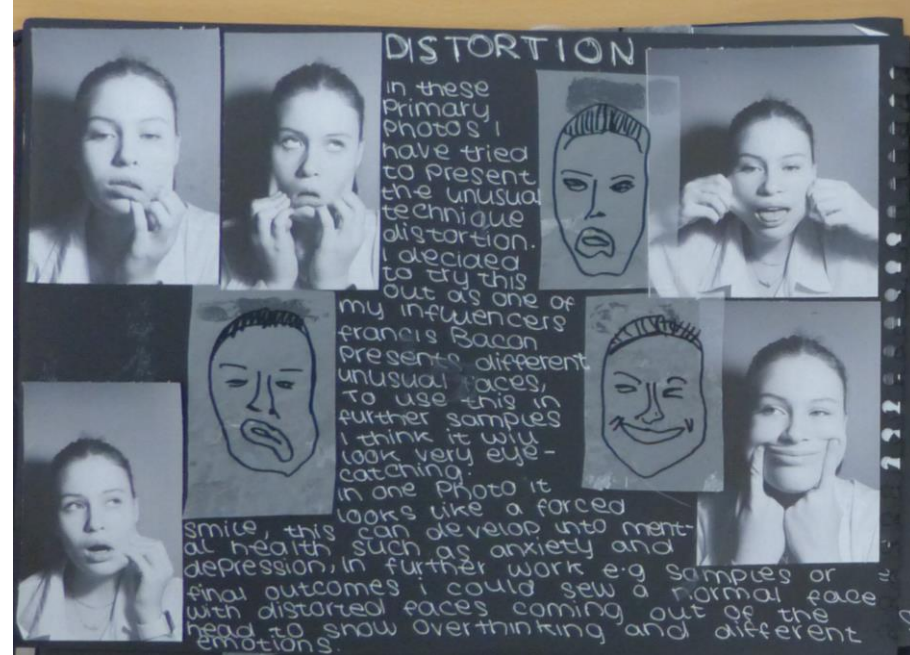 DISTORTION
in these
Primary
photos I
have tried
to present
the unusual
technique
distortion.
I decided
to try this
out as one of
my influencers
francis Bacon
Presents different
unusual faces,
To use this in
further samples
I think it will
look very eye-
catching.
in one Photo it
looks like a forced
smile, this can develop into ment-
al health such as anxiety and
depression, In further work e.g samples or
final outcomes i could sew a normal face
with distorted faces coming out of the
head to show overthinking and different
emotions.